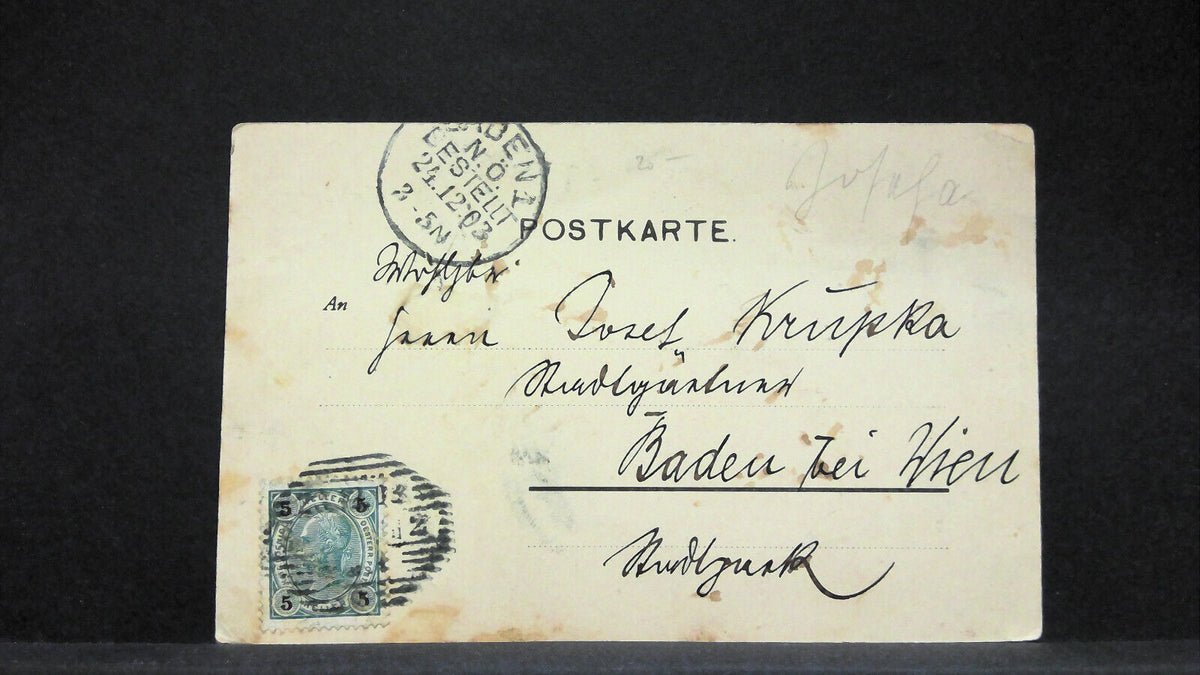 BADEN 1
N.Ö.
BESTELLT
24.12.03
3-5N
20-
Josefa
POSTKARTE.
Wohlgb.
An
Herrn Josef Krupka
Stadtgärtner
Baden bei Wien
Stadtpark
5 HELLER 5
5 5